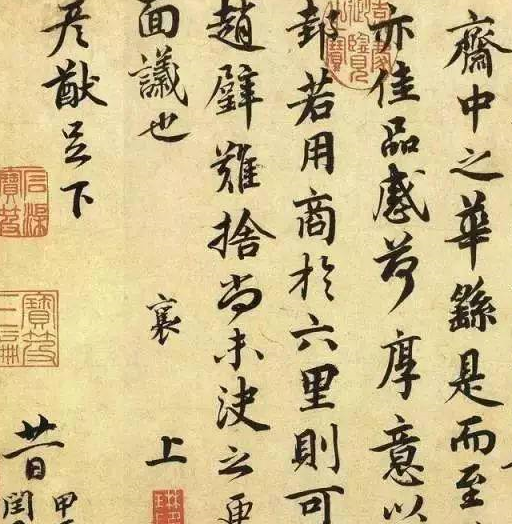 齋中之華繇是而至
亦佳品感荷厚意以
邽若用商於六里則可
趙璧難捨尚未決之更
面議也
襄
上
彥猷足下
廿一日
甲
閏